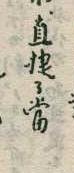 直捷了當